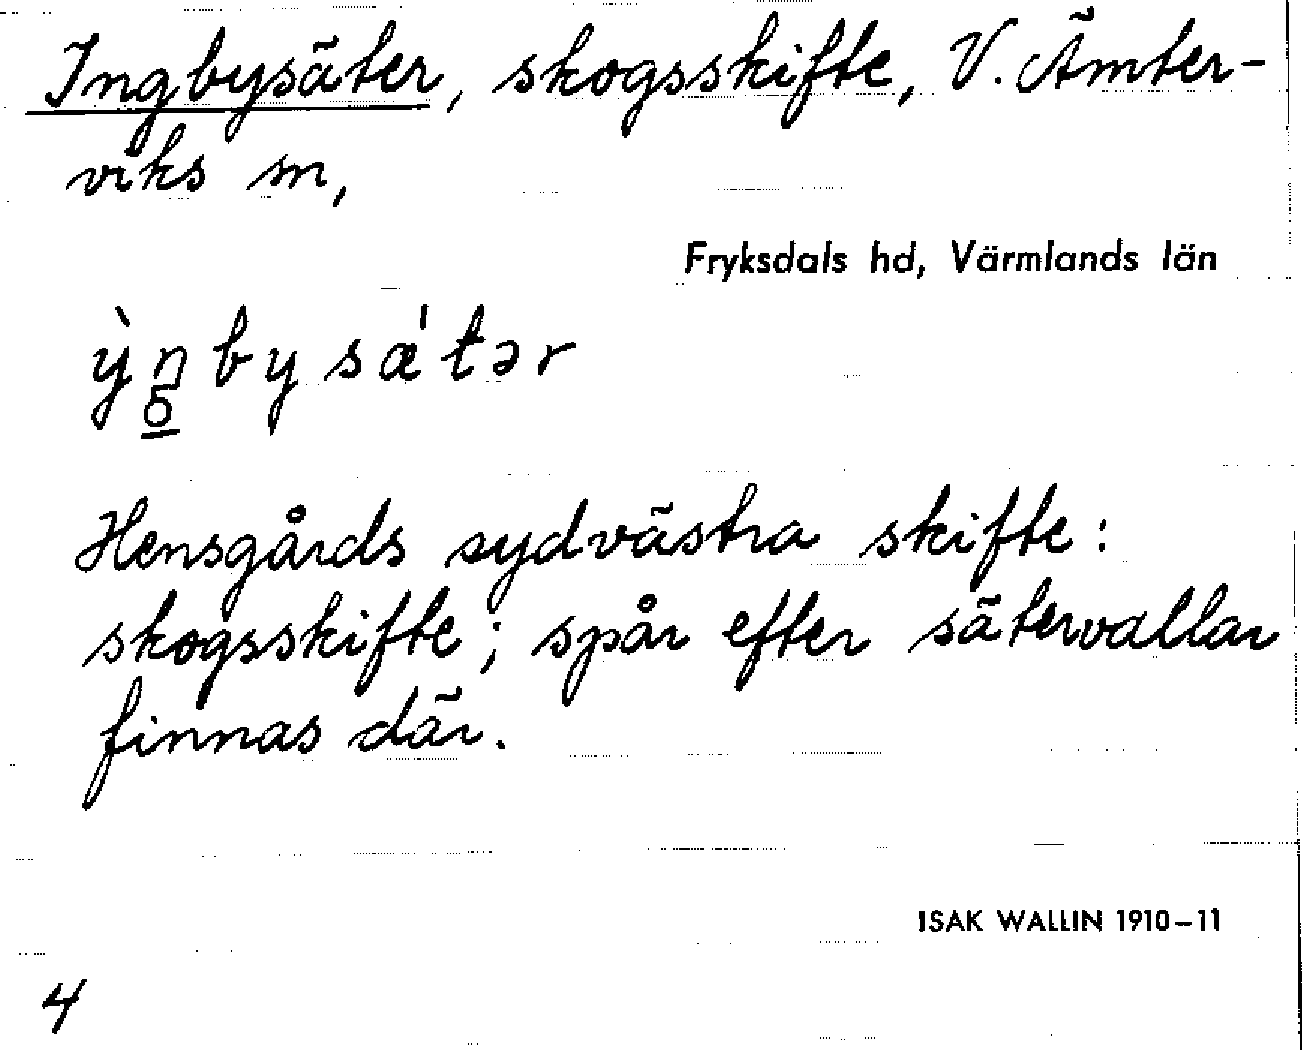 Ingbysäter, skogsskifte, V. Ämter-
viks sn,
Fryksdals hd, Värmlands län
Hensgårds sydvästra skifte:
skogsskifte; spår efter sätervallar
finnas där.
ISAK WALLIN 1910-11
4